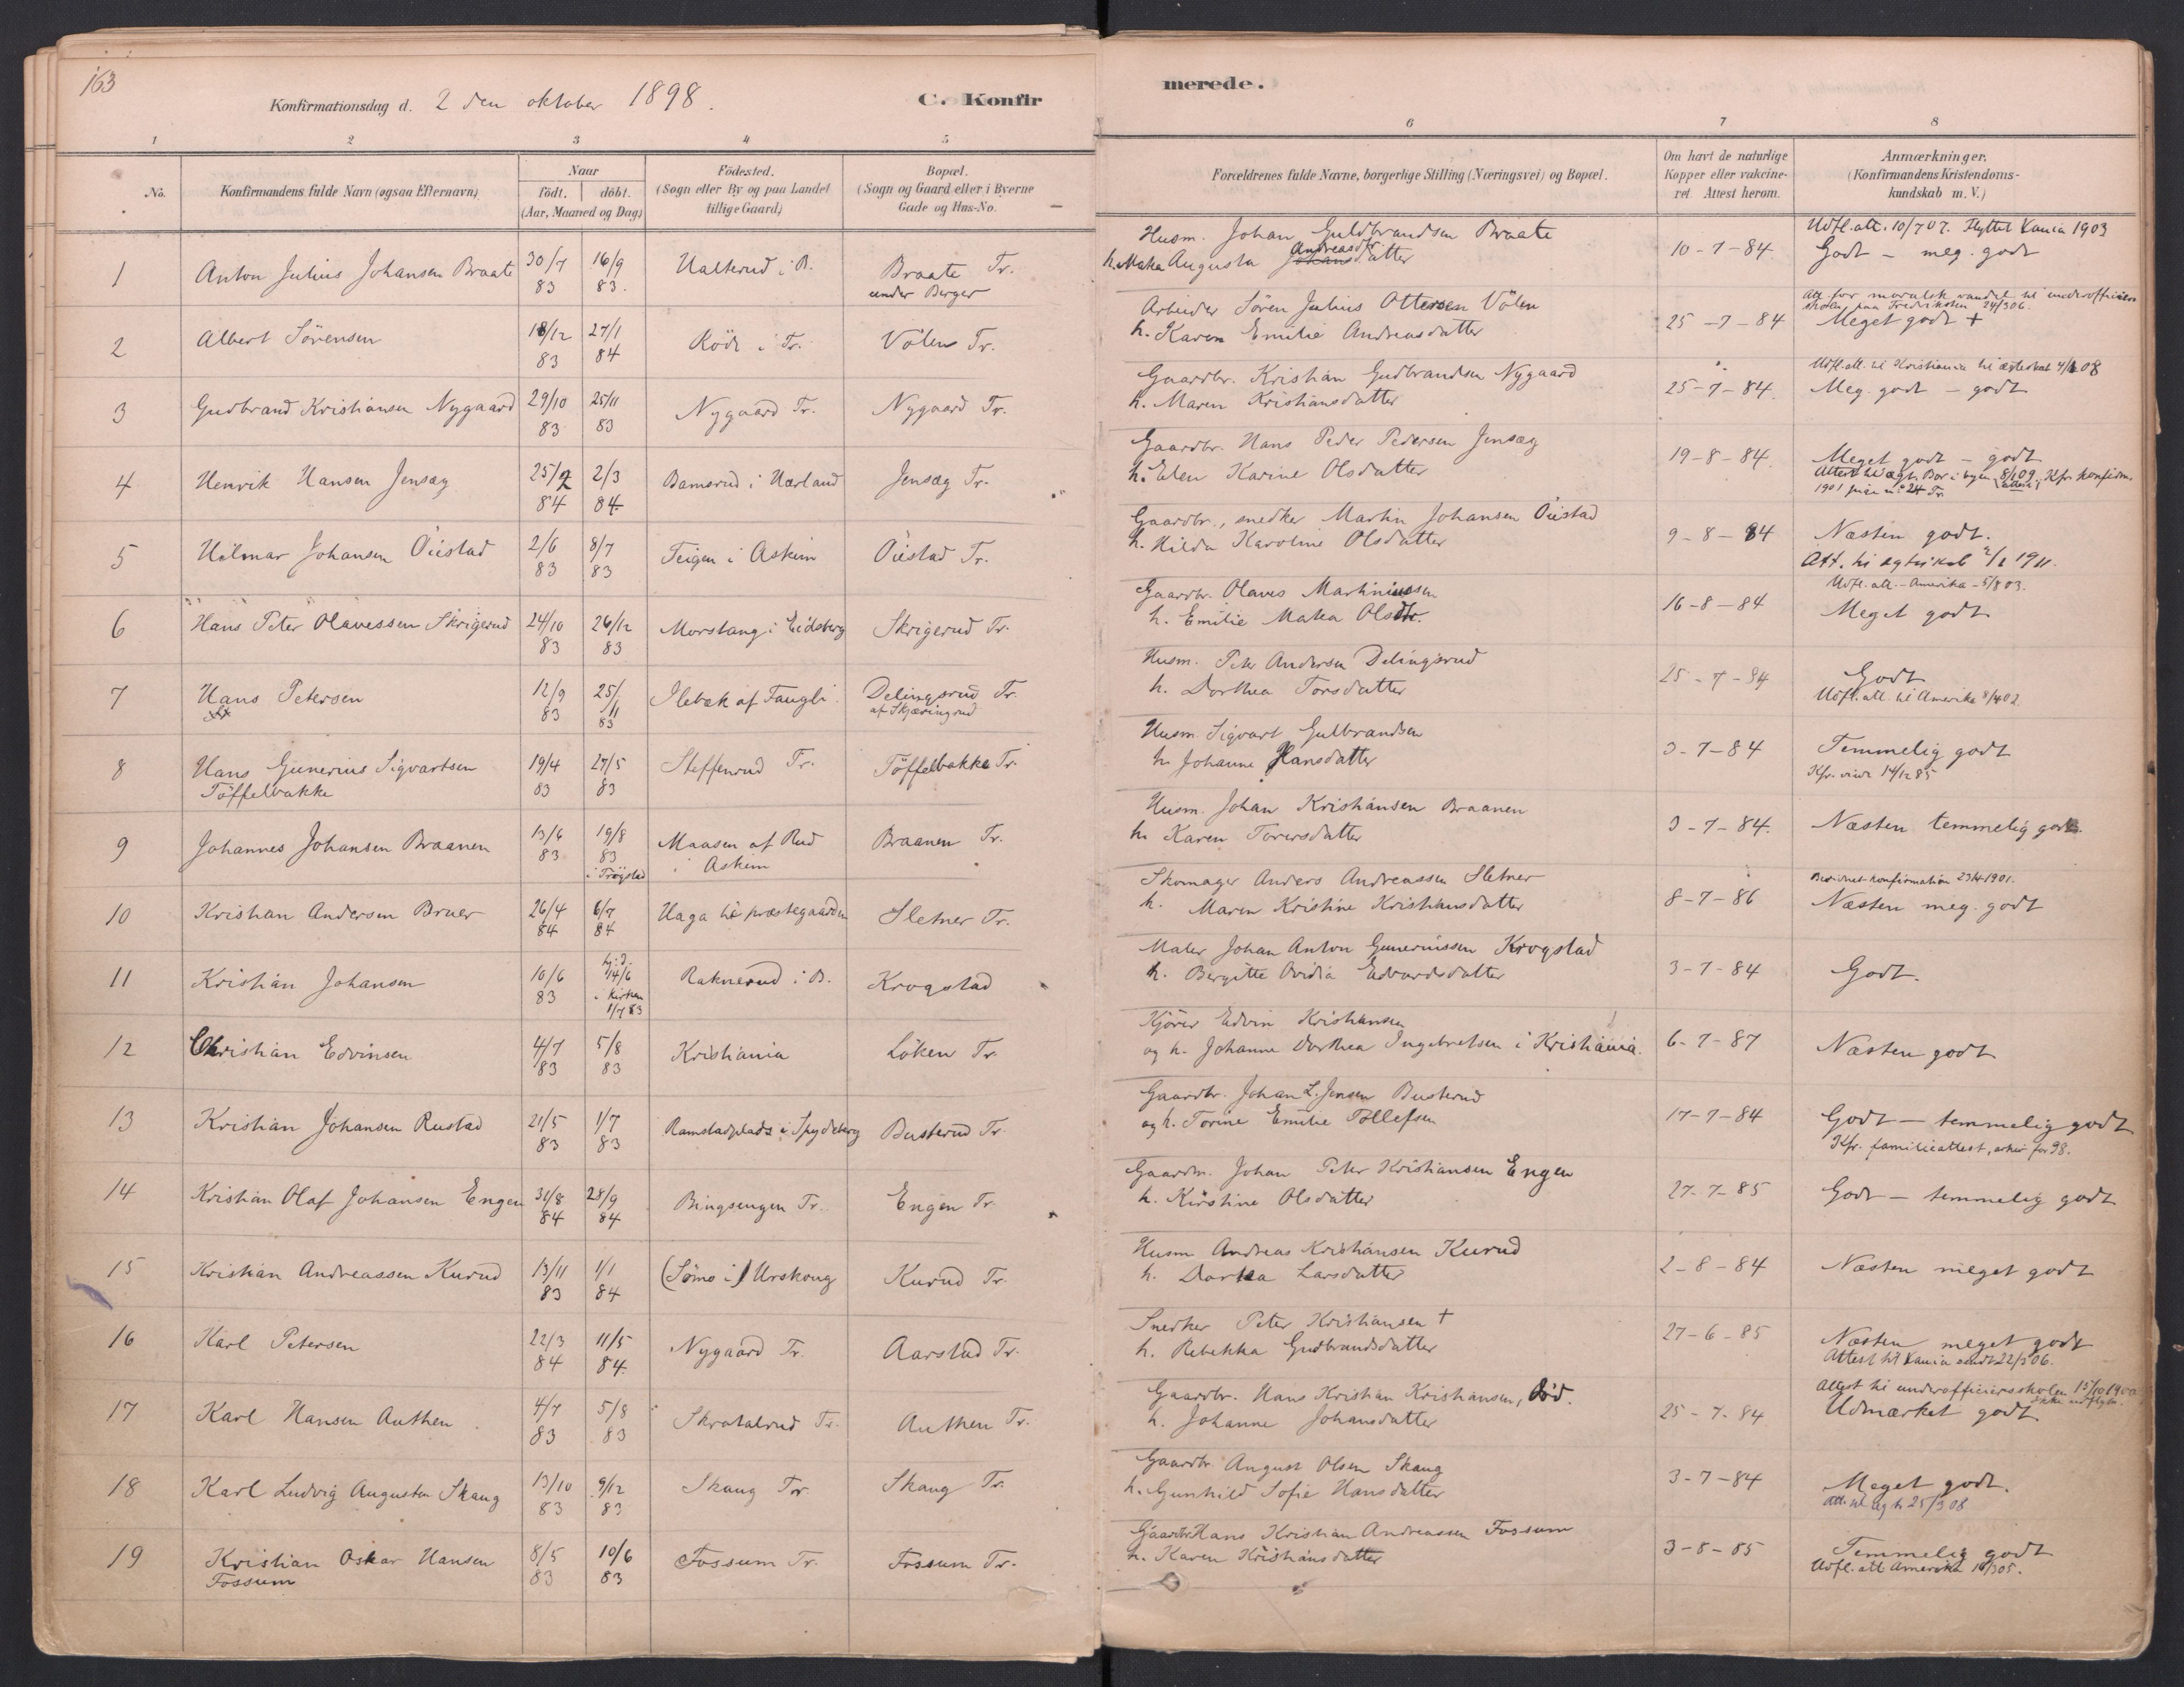 163
Konfirmationsdag d. 2 den oktober 1898.
C. Konfir
merede.
1 2 3 4 5 6 7 8
No.
Konfirmandens fulde Navn (ogsaa Efternavn)
Naar
födt. döbt.
(Aar, Maaned og Dag)
Födested.
(Sogn eller By og paa Landet
tillige Gaard)
Bopæl.
(Sogn og Gaard eller i Byerne
Gade og Hus-No.
Forældrenes fulde Navne, borgerlige Stilling (Næringsvei) og Bopæl.
Om havt de naturlige
Kopper eller vakcine-
ret. Attest herom.
Anmærkninger.
(Konfirmandens Kristendoms-
kundskab m. V.)
1 Anton Julius Johansen Braate 30/7 83 16/9 83. i B. Braate Tr.
under Berger
Husm. Johan Guldbrandsen Braate
h. Mathea Augusta Andreasdtr. Johansdatter
10-7-84.
Udfl.att. 10/7 07. Flyttet Kania 1903
Godt - meg. godt
2 Albert Sörensen 18/12 83 27/1 84 i Tr. Völen Tr.
Arbeider Sören Julius Ottersen Völen
h. Karen Emilie Andreasdatter
25-7-84
Att. for moralsk vandel til underofficiers
skolen paa Fredriksten 24/3 06.
Meget godt +
3 Gudbrand Kristiansen Nygaard 29/10 83 25/11 83 Nygaard Tr. Nygaard Tr.
Gaardbr. Kristian Gudbrandsen Nygaard
h. Maren Kristiansdatter
25-7-84.
Udfl.att. til Kristiania til ægteskab 08
Meg. godt - godt
4 Henrik Hansen Jensæg 25/2 84 2/3 84. Bamsrud i Hærland Jensæg Tr.
Gaardbr. Hans Peder Pedersen Jensæg
h. Elen Karine Olsdatter
19-8-84.
Meget godt - godt
Kfr. konfirm.
1901 24 Tr.
5 Hilmar Johansen Öiestad 2/6 83 8/7 83 Teigen i Askim Öiestad Tr.
Gaardbr., snedker Martin Johansen Öiestad
h. Hilda Karoline Olsdatter
9-8-84
Næsten godt.
Att. til egteskab 1911.
6 Hans Peter Olavessen Skrigerud 24/10 83 26/12 83 Morstang i Eidsberg Skrigerud Tr.
Gaardbr. Olaves Martiniussen
h. Emilie Matea Olsdtr.
16-8-84
Udfl. att. - Amerika - 5/8 03.
Meget godt
7 Hans Petersen 12/9 83 25/11 83 Ilebæk af Faugli Delingsrud Tr.
af Skjæringrud
Husm. Peter Andersen Delingsrud
h. Dorthea Torsdatter
25-7-84
Godt
Udfl. att. til Amerika 8/4 02.
8 Hans Gunerius Sigvartsen
Töffelbakke
19/4 83 27/5 83 Steffenrud Tr. Töffelbakke Tr.
Husm. Sigvart Gulbrandsen
h. Johanne Hansdatter
3-7-84
Temmelig godt
Kfr. 14/12 85
9 Johannes Johansen Braanen 13/6 83 19/8 83
i Trögstad
Maasen af Rud
i Askim
Braanen Tr.
Husm. Johan Kristiansen Braanen
h. Karen Torersdatter
3-7-84.
Næsten temmelig godt.
10 Kristian Andersen Bruer 26/4 84 6/7 84 Haga til præstegaarden Sletner Tr.
Skomager Anders Andreassen Sletner
h. Maren Kristine Kristiansdatter
8-7-86
konfirmation 23/4 1901.
Næsten meg. godt
11 Kristian Johansen 10/6 83 hj.d. 14/6
i kirken
1/7 83
Raknerud i B. Krogstad
Maler Johan Anton Gunerinssen Krogstad
h. Bergitte Ovidia Edvardsdatter
3-7-84
Godt.
12 Christian Edvinsen 4/7 83 5/8 83 Kristiania Löken Tr.
Kjörer Edvin Kristiansen
og h. Johanne Dorthea Ingebretsen i Kristiania.
6-7-87
Næsten godt
13 Kristian Johansen Rustad 21/5 83 1/7 83 Ramstadplads i Spydeberg Busterud Tr.
Gaardbr. Johan L. Jensen Busterud
og h. Torine Emilie Tollefsen
17-7-84
Godt - temmelig godt
Kfr. familieattest, arkiv for 98.
14 Kristian Olaf Johansen Engen 31/8 84 28/9 84 Bingsengen Tr. Engen Tr.
Gaardm. Johan Peter Kristiansen Engen
h. Kirstine Olsdatter
27-7-85
Godt - temmelig godt
15 Kristian Andreassen Kurud 13/11 83 1/1 84 (Sömo i) Urskoug Kurud Tr.
Husm Andreas Kristiansen Kurud
h. Dorthea Larsdatter
2-8-84
Næsten meget godt
16 Karl Petersen 22/3 84 11/5 84. Nygaard Tr. Aarstad Tr.
Snedker Peter Kristiansen +
h. Rebekka Gudbrandsdatter
27-6-85
Næsten meget godt
Attest til Kania sendt 22/3 06.
17 Karl Hansen Authen 4/7 83 5/8 83 Skratalrud Tr. Authen Tr.
Gaardbr. Hans Kristian Kristiansen, död.
h. Johanne Johansdatter
25-7-84
Attest til underofficiersskolen 15/10 1900
ikke udflytn.
Udmærket godt.
18 Karl Ludvig Augustsen Skaug 13/10 83 9/12 83 Skaug Tr. Skaug Tr.
Gaardbr. August Olsen Skaug
h. Gunhild Sofie Hansdatter
3-7-84
Meget godt.
Att. til 25/3 08
19 Kristian Oskar Hansen
Fossum
8/5 83 10/6 83 Fossum Tr. Fossum Tr.
Gaardbr. Hans Kristian Andreassen Fossum
h. Karen Kristiansdatter
3-8-85
Temmelig godt
Udfl. att Amerika 05.